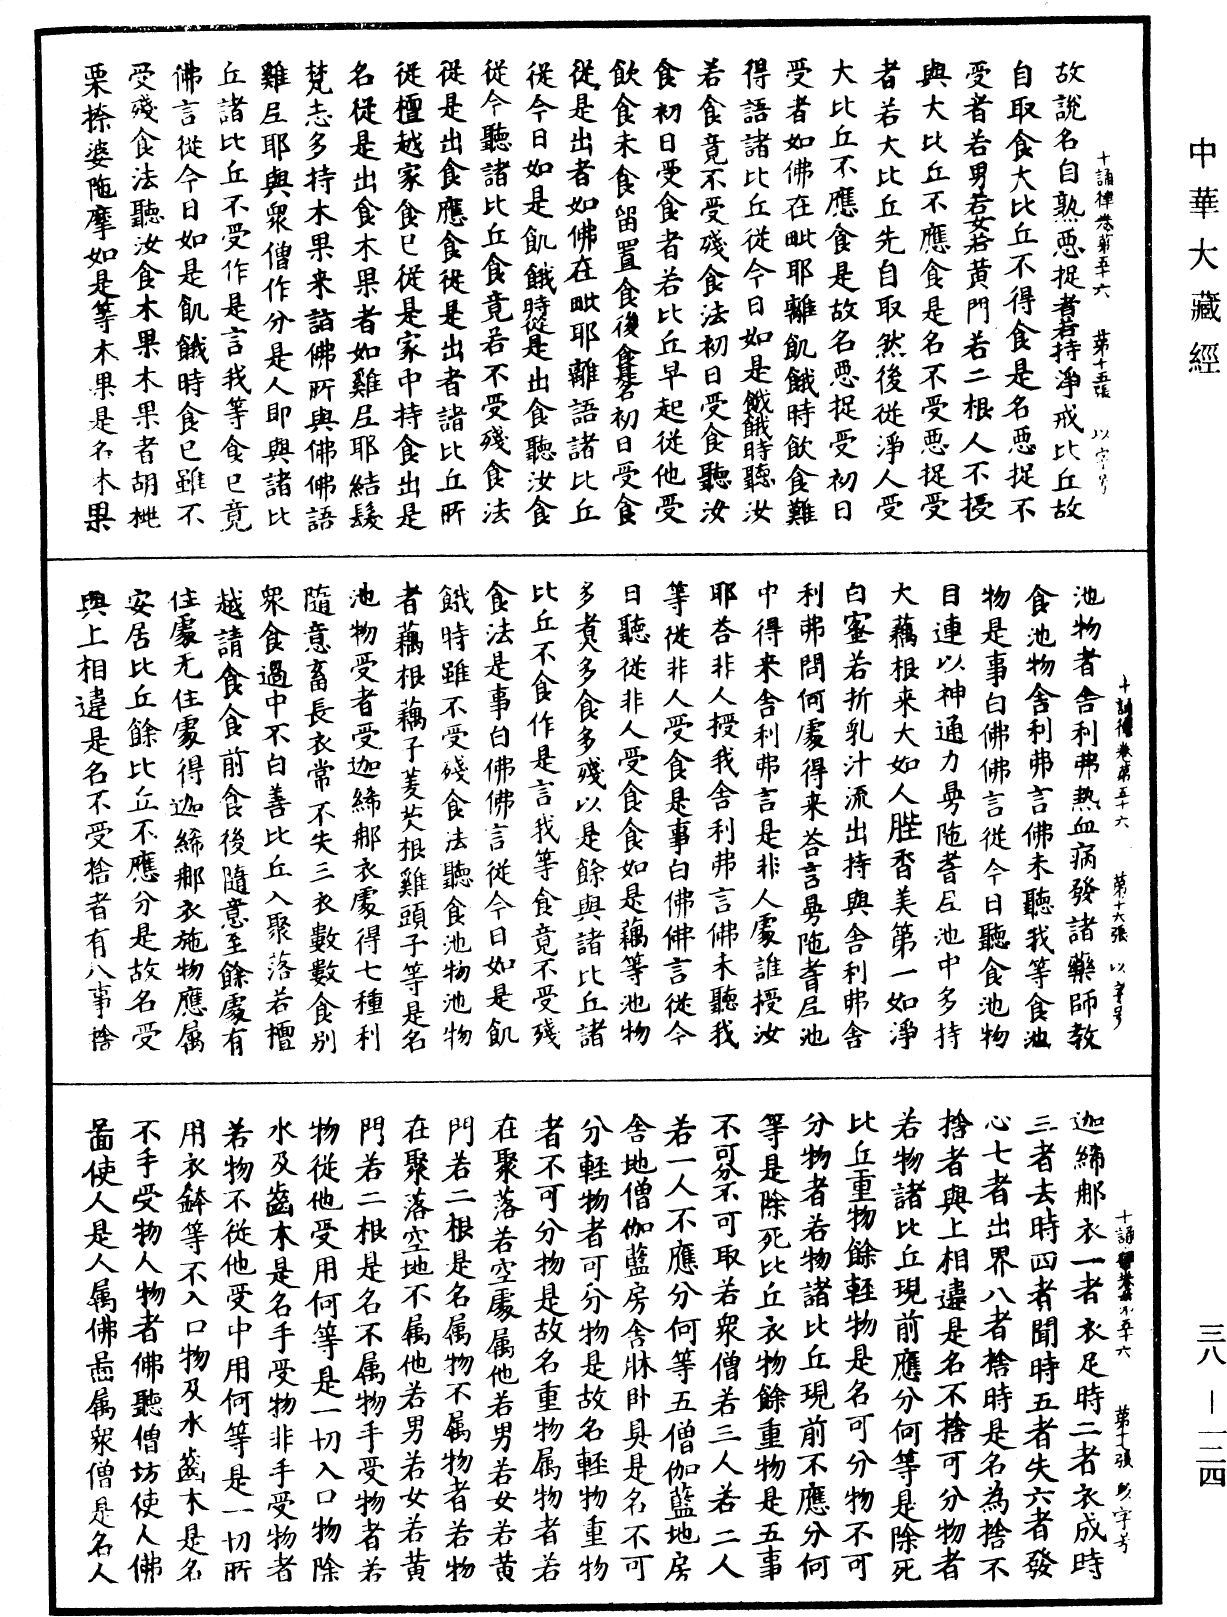 中華大藏經
十誦律卷第五十六 第十五張 以字号
故說名自熟惡捉者若持淨戒比丘故
自取食大比丘不得食是名惡捉不
受者若男若女若黃門若二根人不授
與大比丘不應食是名不受惡捉受
者若大比丘先自取然後從淨人受
大比丘不應食是故名惡捉受初日
受者如佛在毗耶離飢餓時飲食難
得語諸比丘從今日如是飢餓時聽汝
若食竟不受殘食法初日受食聽汝
食初日受食者若比丘早起從他受
飲食未食留置食後食是名初日受食
從是出者如佛在毗耶離語諸比丘
從今日如是飢餓時從是出食聽汝食
從今聽諸比丘食竟若不受殘食法
從是出食應食從是出者諸比丘所
從檀越家食已從是家中持食出是
名從是出食木果者如雞尼耶結髮
梵志多持木果来詣佛所與佛佛語
雞尼耶與衆僧作分是人即與諸比
丘諸比丘不受作是言我等食已竟
佛言從今日如是飢餓時食已雖不
受殘食法聽汝食木果木果者胡桃
栗㮈婆陁摩如是等木果是名木果
十誦律卷第五十六 第十六張 以字号
池物者舍利弗熱血病發諸藥師教
食池物舍利弗言佛未聽我等食池
物是事白佛佛言從今日聽食池物
目連以神通力㝵陁耆尼池中多持
大藕根来大如人䏶香美第一如淨
白蜜若折乳汁流出持與舍利弗舍
利弗問何處得来荅言㝵陁耆尼池
中得来舍利弗言是非人處誰授汝
耶荅非人授我舍利弗言佛未聽我
等從非人受食是事白佛佛言從今
日聽從非人受食食如是藕等池物
多多煮多多食多殘以是餘與諸比丘諸
比丘不食作是言我等食竟不受殘
食法是事白佛佛言從今日如是飢
餓時雖不受殘食法聽食池物池物
者藕根藕子菱芡根雞頭子等是名
池物受者受迦絺那衣處得七種利
隨意畜長衣常不失三衣數數食別
衆食過中不白善比丘入聚落若檀
越請食食前食後隨意至餘處有
住處无住處得迦絺那衣施物應属
安居比丘餘比丘不應分是故名受
與上相違是名不受捨者有八事捨
十誦律卷第五十六 第十七張 以字号
迦絺那衣一者衣足時二者衣成時
三者去時四者聞時五者失六者發
心七者出界八者捨時是名為捨不
捨者與上相違是名不捨可分物者
若物諸比丘現前應分何等是除死
比丘重物餘輕物是名可分物不可
分物者若物諸比丘現前不應分何
等是除死比丘衣物餘重物是五事
不可分不可取若衆僧若三人若二人
若一人不應分何等五僧伽藍地房
舍地僧伽藍房舍牀卧具是名不可
分輕物者可分物是故名輕物重物
者不可分物是故名重物属物者若
在聚落若空處属他若男若女若黃
門若二根是名属物不属物者若物
在聚落空地不属他若男若女若黃
門若二根是名不属物手受物者若
物從他受用何等是一切入口物除
水及齒木是名手受物非手受物者
若物不從他受中用何等是一切所
用衣鉢等不入口物及水齒木是名
不手受物人物者佛聽僧坊使人佛
啚使人是人属佛啚属衆僧是名人
三八—一二四